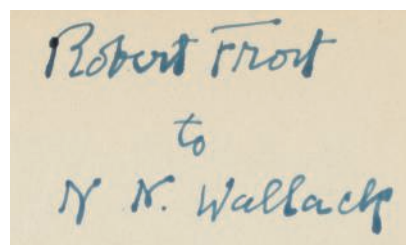 Robert Frost
to
N N. Wallack